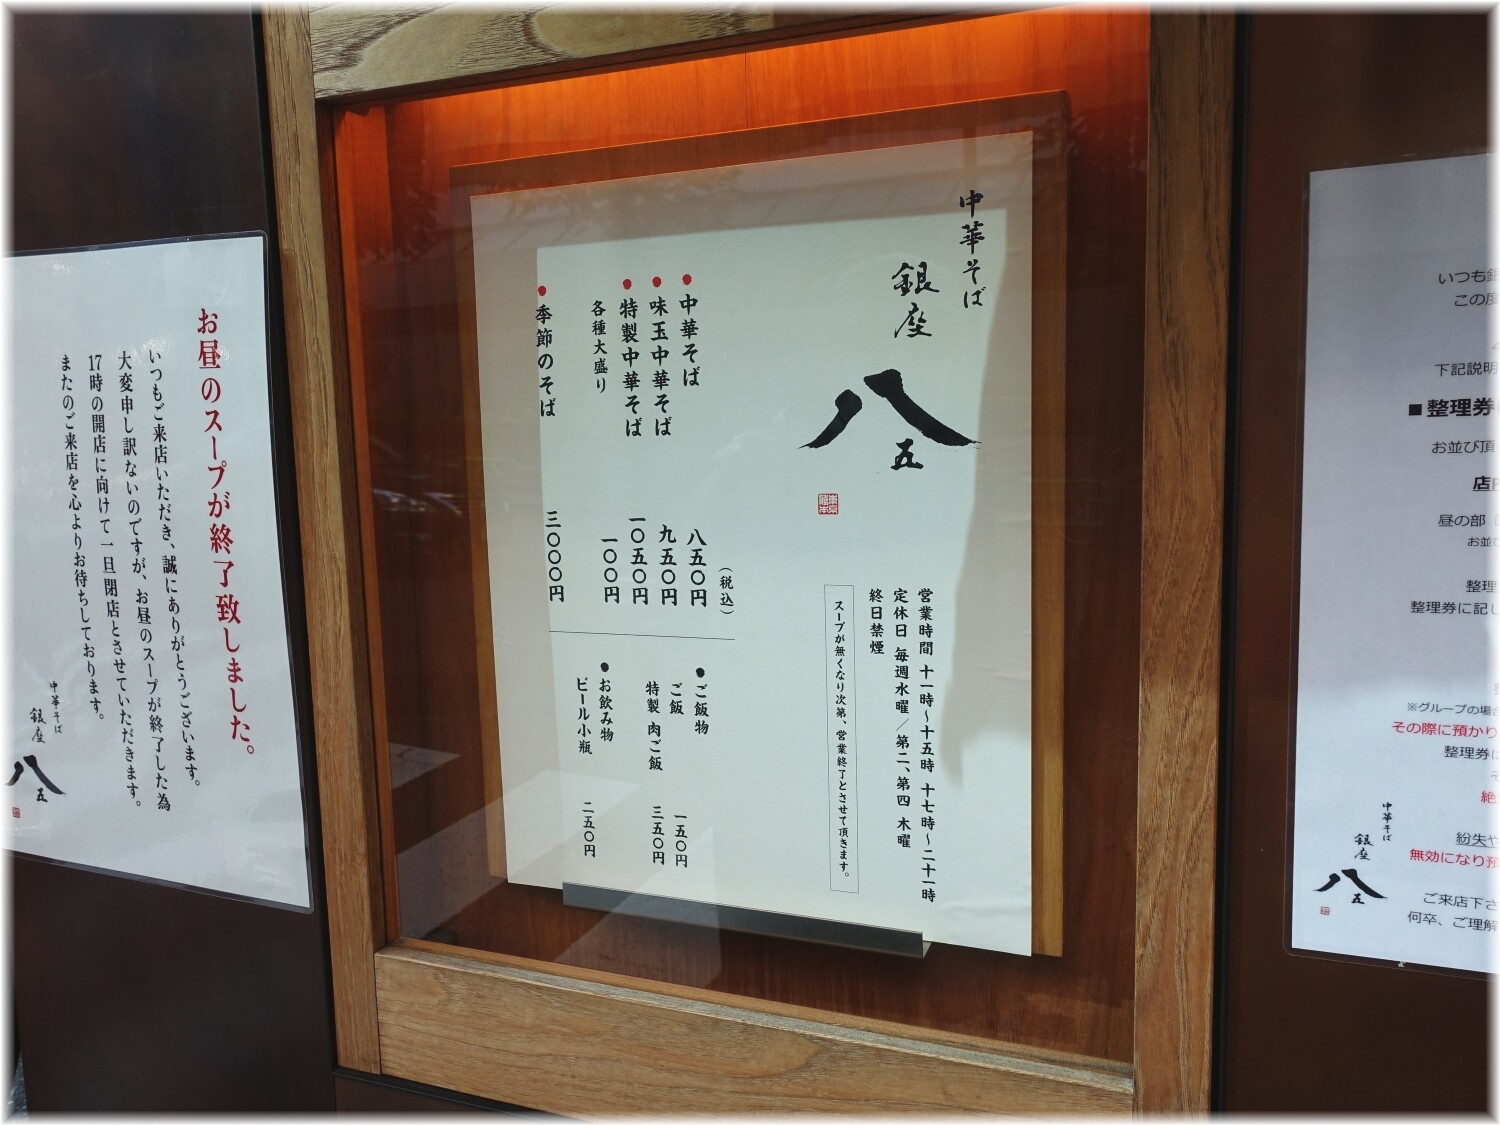 お昼のスープが終了致しました。
いつもご来店いただき、誠にありがとうございます。
大変申し訳ないのですが、お昼のスープが終了した為
17時の開店に向けて一旦閉店とさせていただきます。
またのご来店を心よりお待ちしております。
中華そば
銀座
八五
中華そば
銀座
八五
営業時間 十一時〜十五時 十七時〜二十一時
定休日 毎週水曜／第二、第四 木曜
終日禁煙
スープが無くなり次第、営業終了とさせて頂きます。
（税込）
●中華そば 八五〇円
●味玉中華そば 九五〇円
●特製中華そば 一〇五〇円
各種大盛り 一〇〇円
●季節のそば 三〇〇〇円
●ご飯物
ご飯 一五〇円
特製 肉ご飯 三五〇円
●お飲み物
ビール小瓶 二五〇円
いつも銀
この度
下記説明
■整理券
お並び頂
店内
昼の部
お並び
整理
整理券に記し
※グループの場合
その際に預かり
整理券は
そ
絶
紛失や
無効になり預
ご来店下さ
何卒、ご理解
中華そば
銀座
八五